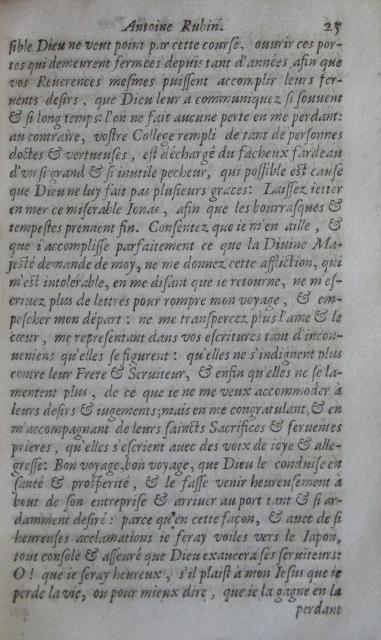 Antoine Rubin. 25
sible Dieu ne veut point par cette course, ouurir ces por-
tes qui demeurent fermées depuis tant d'années, afin que
vos Reuerences mesmes puissent accomplir leurs fer-
uents desirs, que Dieu leur a communiquez si souuent
& si long temps: l'on ne fait aucune perte en me perdant:
au contraire, vostre College rempli de tant de personnes
doctes & vertueuses, est déchargé du facheux fardeau
d'vn si grand & si inutile pecheur, qui possible est cause
que Dieu ne luy fait pas plusieurs graces: Laissez ietter
en mer ce miserable Ionas, afin que les bourrasques &
tempestes prennent fin. Consentez que ie m'en aille, &
que i'accomplisse parfaitement ce que la Diuine Ma-
jesté demande de moy, ne me donnez cette affliction, qui
m'est intolerable, en me disant que ie retourne, ne m'es-
criuez plus de lettres pour rompre mon voyage, & em-
pescher mon départ: ne me transpercez plus l'ame & le
cœur, me representant dans vos escritures tant d'incon-
ueniens qu'elles se figurent: qu'elles ne s'indignent plus
contre leur Frere & Seruiteur, & enfin qu'elles ne se la-
mentent plus, de ce que ie ne me veux accommoder à
leurs desirs & iugements; mais en me congratulant, & en
m'accompagnant de leurs saincts Sacrifices & feruentes
prieres, qu'elles s'escrient auec des voix de ioye & alle-
gresse: Bon voyage, bon voyage, que Dieu le conduise en
santé & prosperité, & le fasse venir heureusement à
bout de son entreprise & arriuer au port tant & si ar-
damment desiré: parce qu'en cette façon, & auec de si
heureuses acclamations ie feray voiles vers le Iapon,
tout consolé & asseuré que Dieu exaucera ses seruiteurs:
O! que ie seray heureux, s'il plaist à mon Iesus que ie
perde la vie, ou pour mieux dire, que ie la gagne en la
perdant